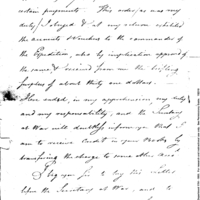 certain payments. This order, as was my
duty, I obeyed & at my return exhibited
the accounts & Vouchers to the commander of
the Expedition, who by his explanation approved of
the same & received from me the trifling
surplus of about thirty one dollars.
Here ended, in my apprehension, my duty
and my responsibility, and the Secretary
at War will doubtless inform you that I
am to receive Credit in your Books by
transferring the charge to some other acct.
I beg you Sir to lay this matter
before the Secretary at War, and to